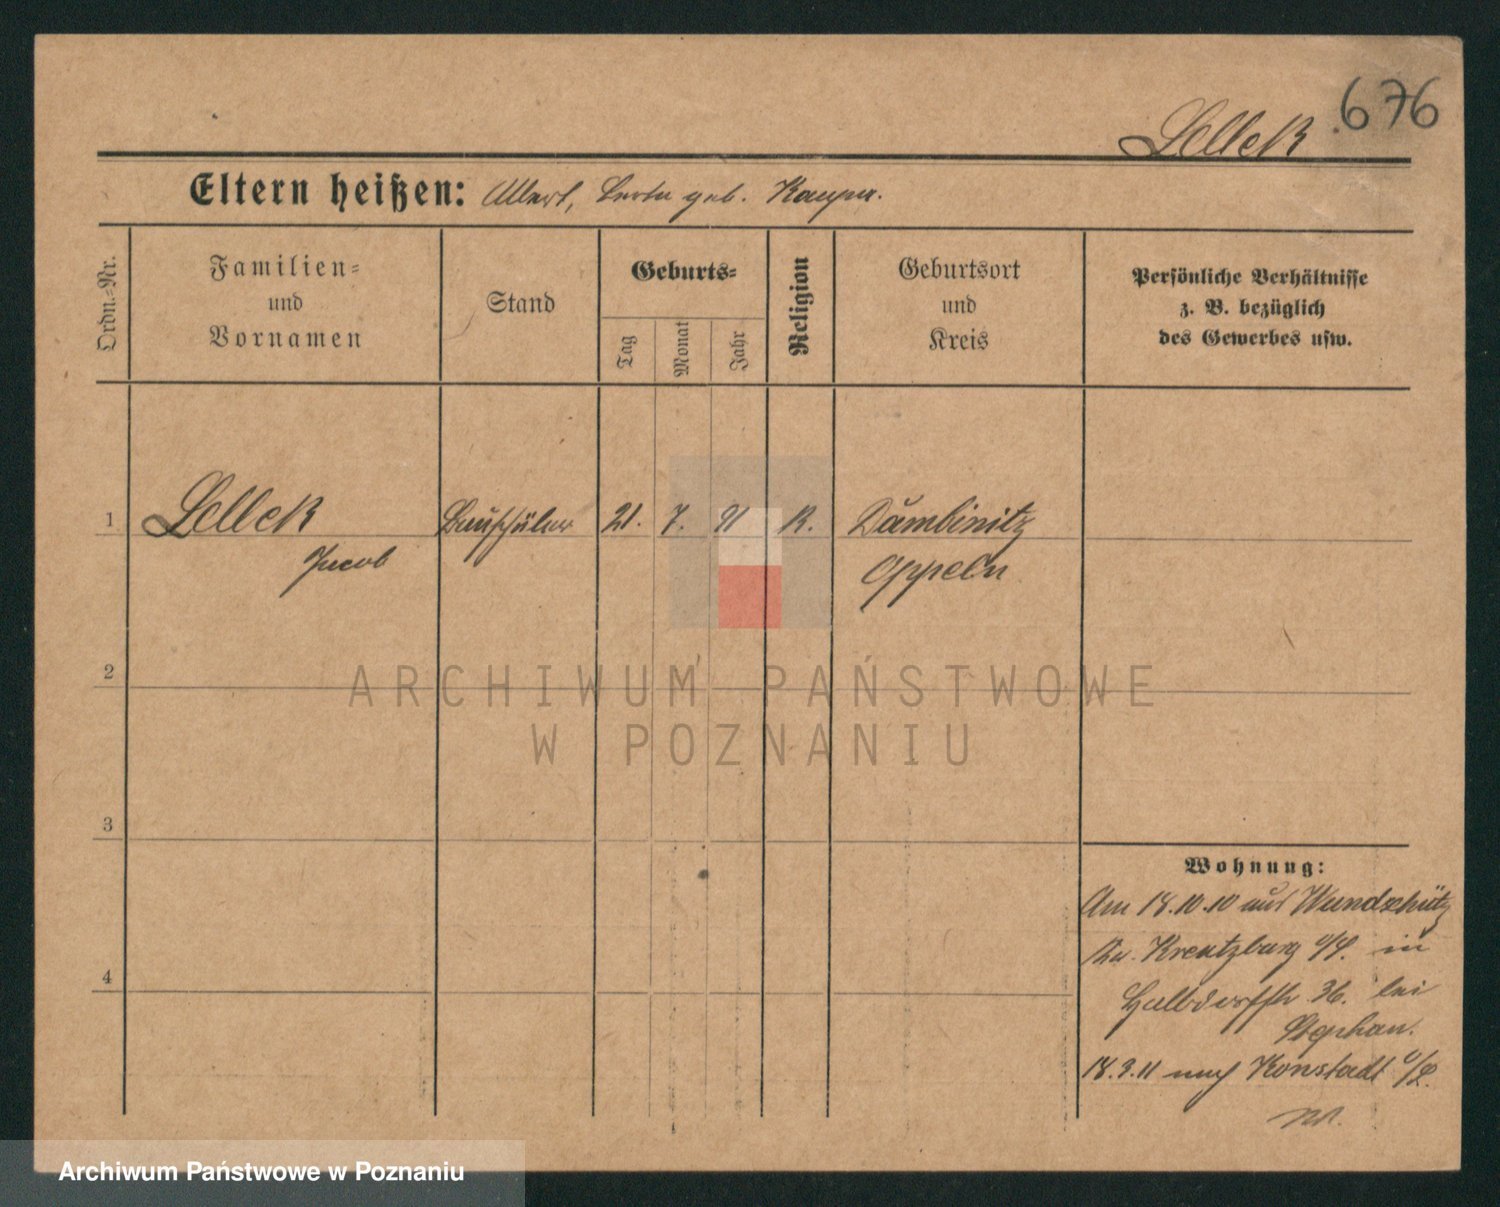 676
Lelleck
Eltern heißen: Albert, Berta geb. Kaupa.
Ordn.-Nr.
Familien-
und
Vornamen
Stand
Geburts-
Tag
Monat
Jahr
Religion
Geburtsort
und
Kreis
Persönliche Verhältnisse
z. B. bezüglich
des Gewerbes usw.
1 Lelleck Bauschüler 21. 7. 91 K. Dämbinitz
Jacob Oppeln
2
ARCHIWUM PAŃSTWOWE
W POZNANIU
3
4
Wohnung:
Am 18.10.10 aus Wundschütz
Kr. Kreutzburg o/S. in
Halbdorfstr 36. bei
Stephan.
18.3.11 nach Konstadt o/S.
Archiwum Państwowe w Poznaniu